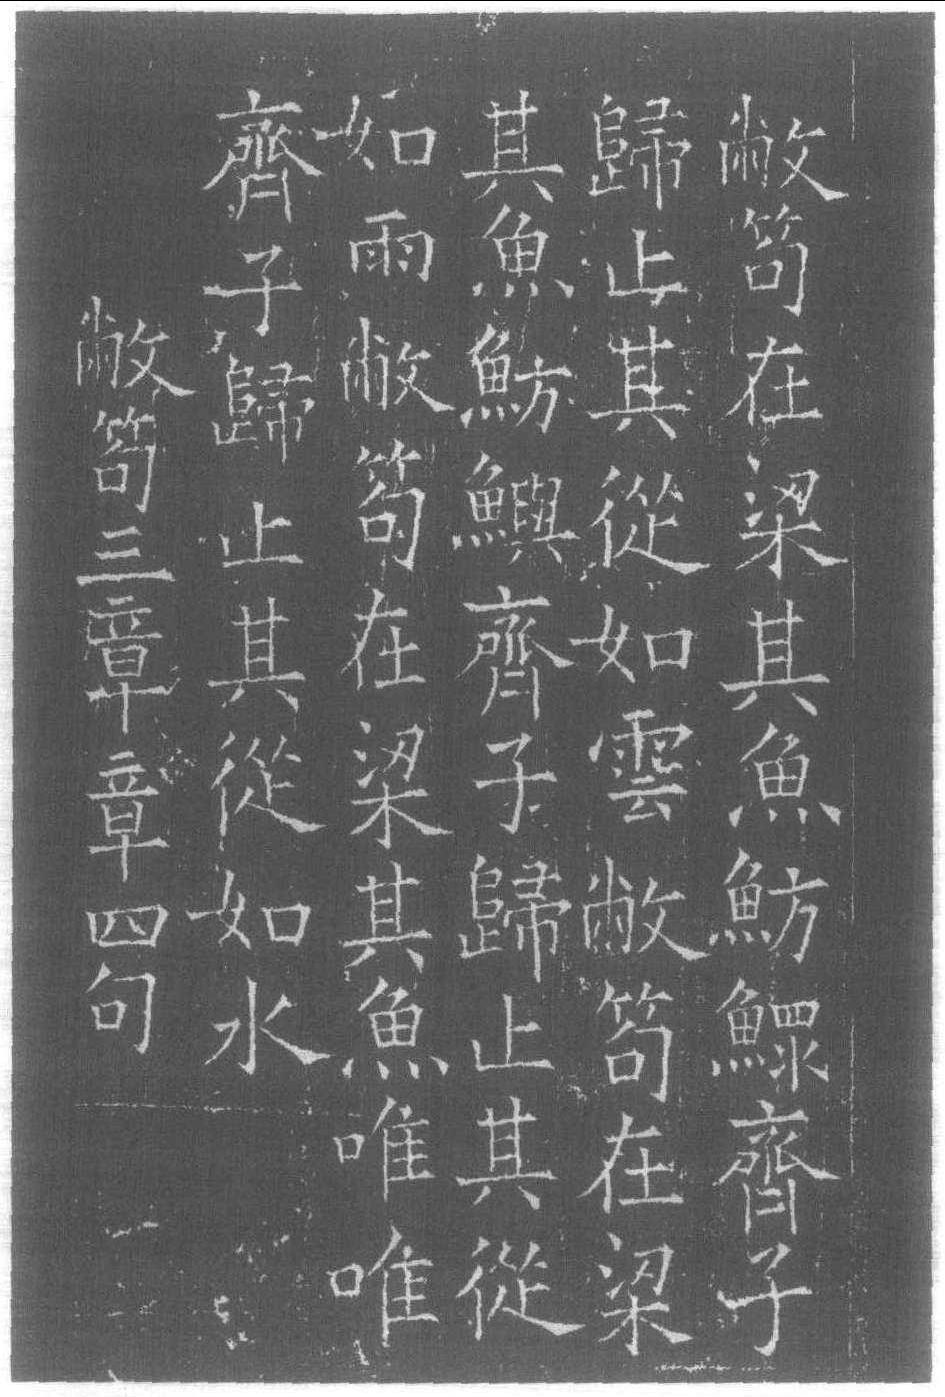 敝笱在梁其魚魴鰥齊子
歸止其從如雲敝笱在梁
其魚魴鱮齊子歸止其從
如雨敝笱在梁其魚唯唯
齊子歸止其從如水
敝笱三章章四句